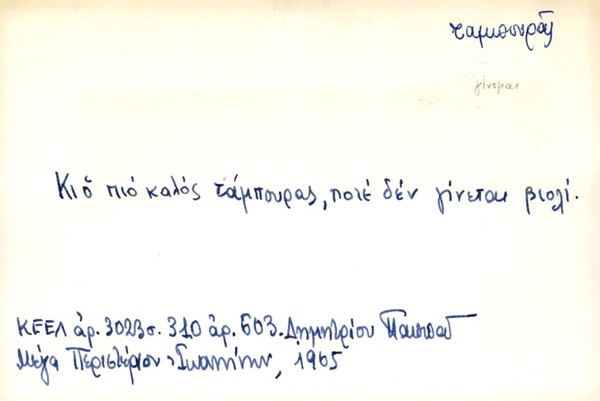 ταμπουρᾶς
γίνομαι
Κι ὁ πιό καλός τάμπουρας, ποτέ δέν γίνεται βιολί.
ΚΕΕΛ ἀρ. 3023 σ. 310 ἀρ. 603. Δημητρίου
Μέγα Περιστέριον Ἰωαννίνων, 1965